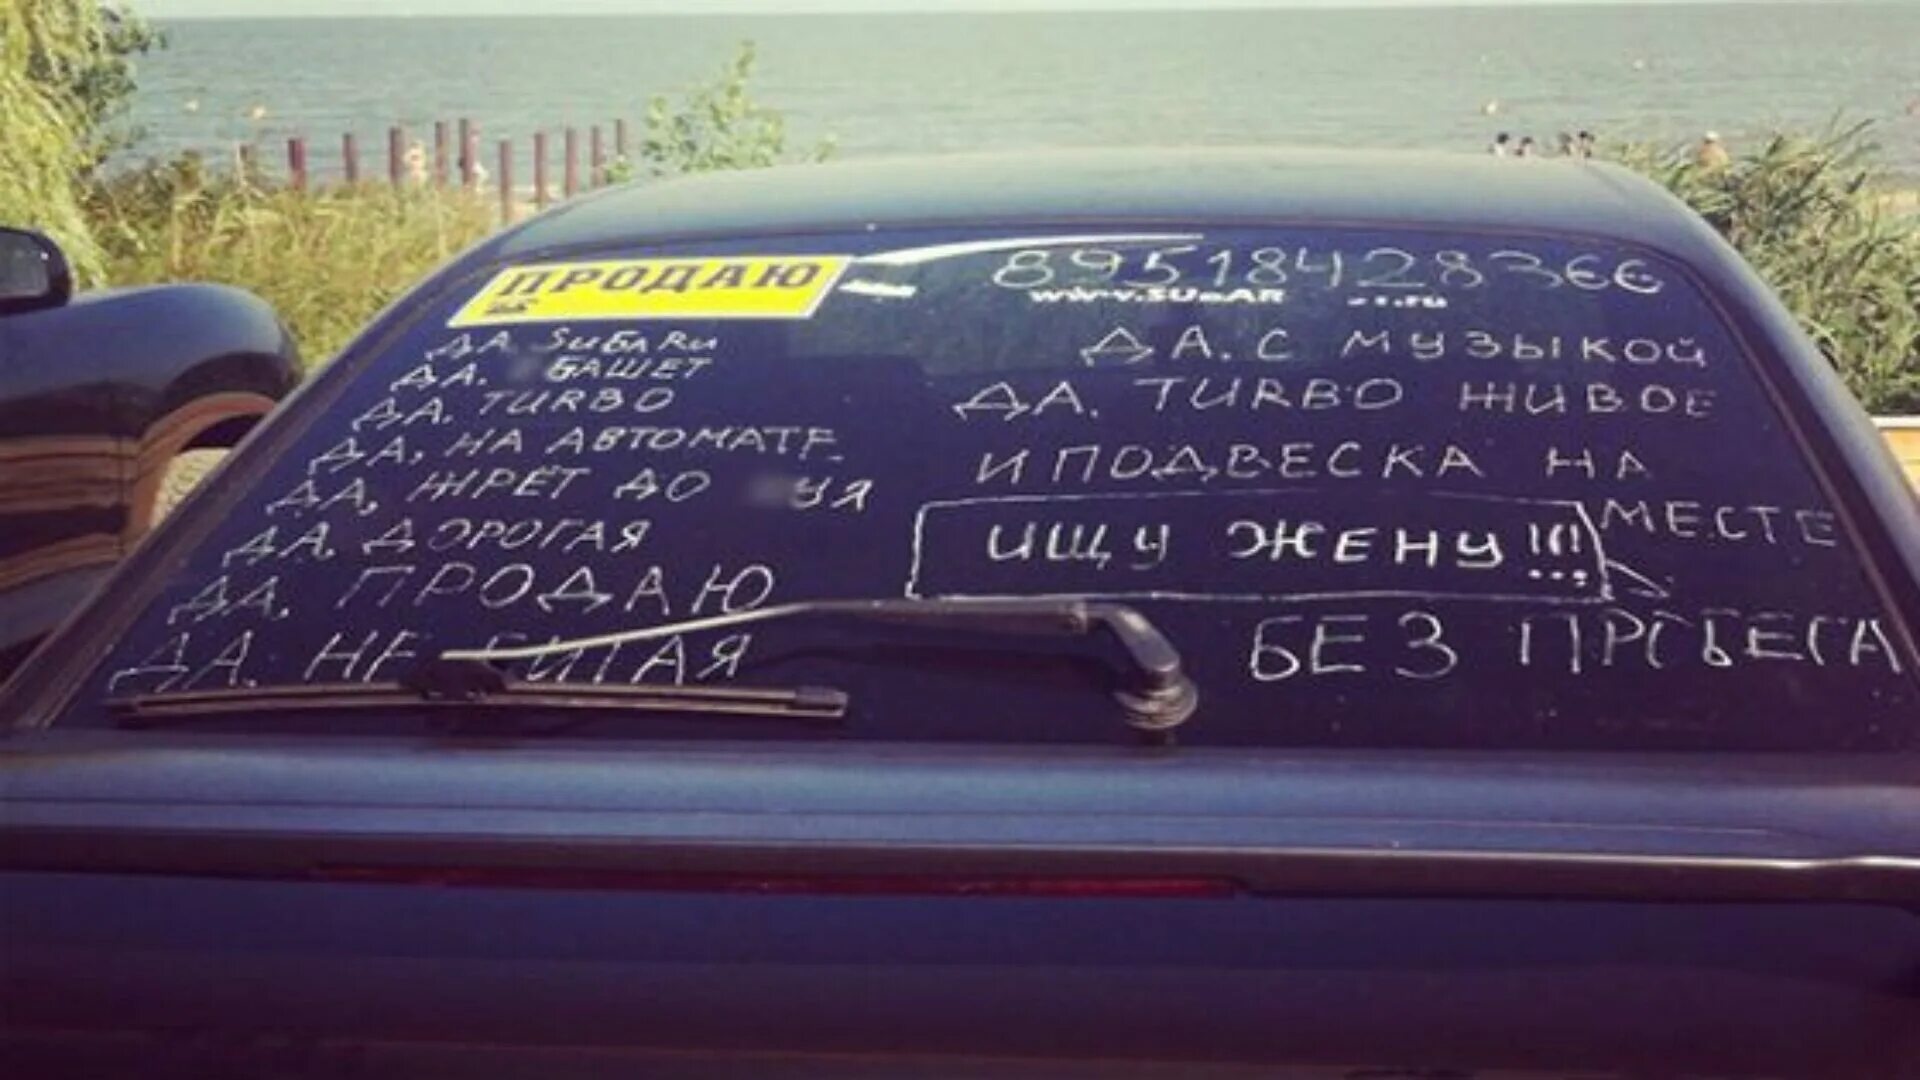 ПРОДАЮ
ДА SUБARU
ДА. БАШЕТ
ДА. TURBO
ДА, НА АВТОМАТЕ
ДА, ЖРЁТ ДО УЯ
ДА. ДОРОГАЯ
ДА. ПРОДАЮ
ДА. НЕ БИТАЯ
ДА. С МУЗЫКОЙ
ДА. TURBO ЖИВОЕ
И ПОДВЕСКА НА
МЕСТЕ
ИЩУ ЖЕНУ!!!
БЕЗ ПРОБЕГА